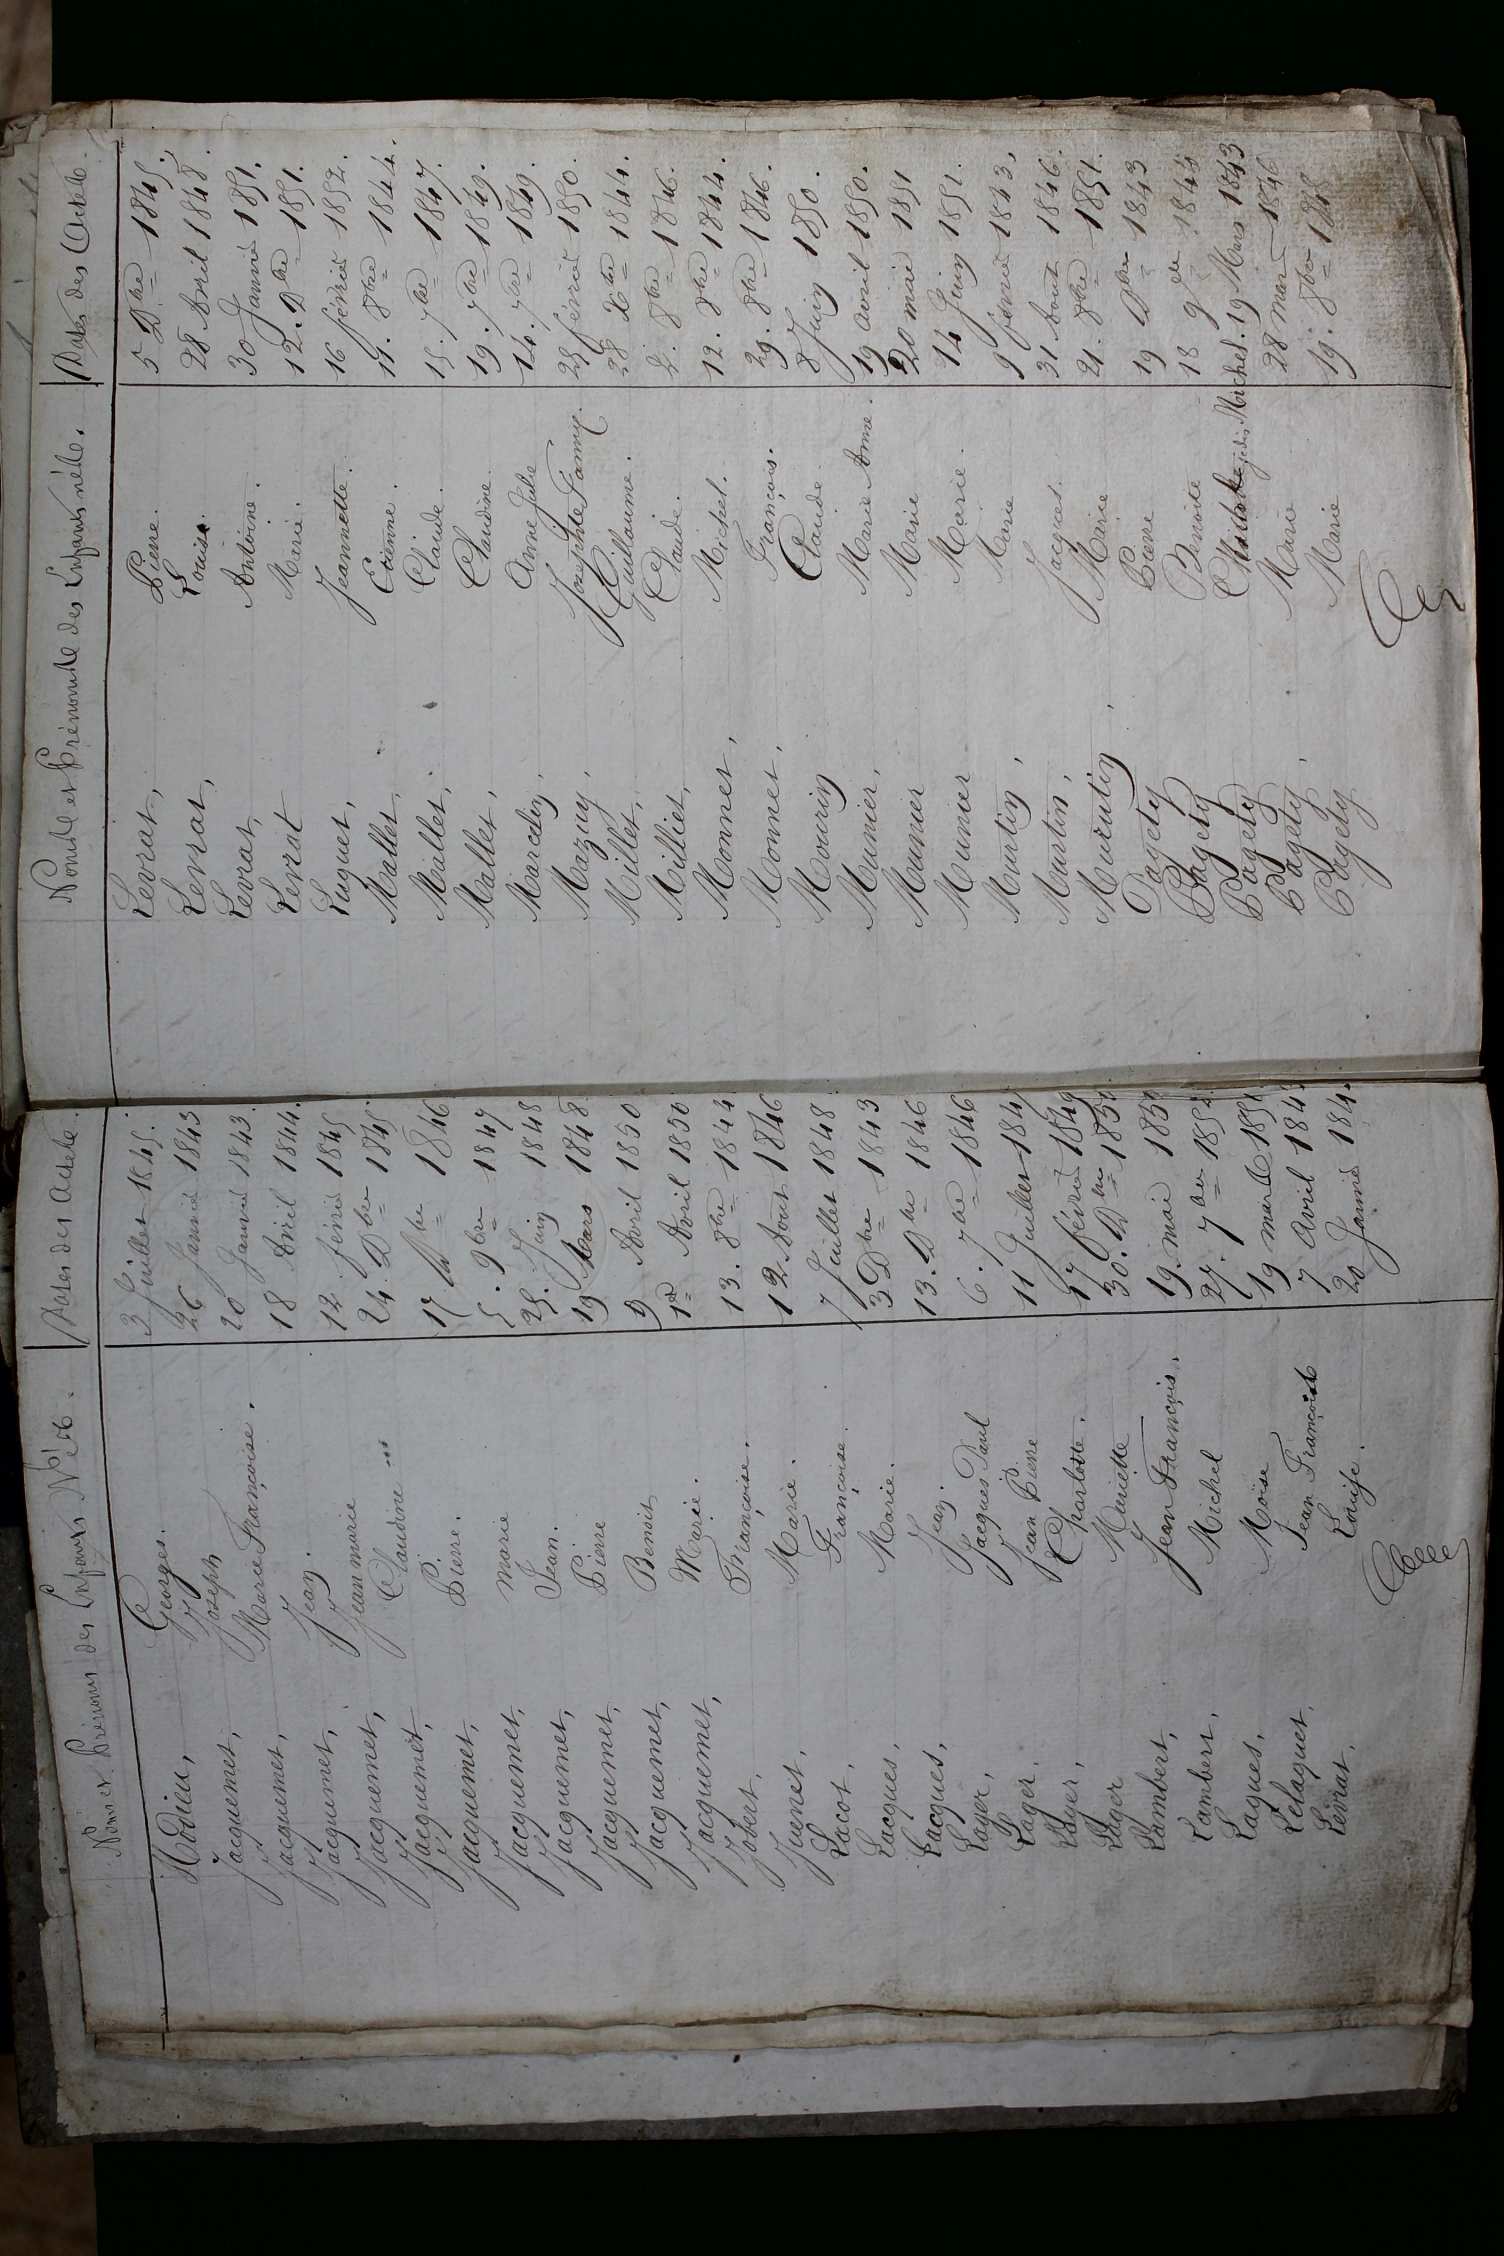 Noms et Prénoms des Enfants Nés. Dates des Actes.
Hodieu, Georges. 3 Juillet 1845.
Jacquemet, Joseph 26 Janvier 1843
Jacquemet, Marie Françoise. 20 Janvier 1843.
Jacquemet, Jean. 18 Avril 1844.
Jacquemet, Jean marie 12 février 1845
Jacquemet, Claudine 24. Dbre 1845.
Jacquemet, Pierre. 17 Dbre 1846
Jacquemet, marie 5. 9bre 1847
Jacquemet, Jean. 25. Juin 1848
Jacquemet, Pierre 19 Mars 1848
Jacquemet, Benoit 9 Avril 1850
Jacquemet, Marie. 1er Avril 1850
Jobert, Françoise. 13. 8bre 1844
Juenet, Marie. 12 Aout 1846
Lacot, Françoise. 7 Juillet 1848
Lacques, Marie. 3 Dbre 1843
Lacques, Jean. 13. Dbre 1846
Lager, Jacques Paul 6. 7bre 1846
Lager, Jean Pierre 11 Juillet 184
Lager, Charlotte. 17 février 1849
Lager Mariette 30. Dbre 185
Lambert, Jean François. 19. mai 185
Lambert, Michel 27. 7bre 185
Laques, Moïse 19 mars 185
Lelaquet, Jean François 7 Avril 184
Levrat, Louise. 20 Janvier 184
Noms et Prénoms des Enfants nés. Dates des Actes.
Levrat, Pierre. 5 Dbre 1845.
Levrat, Louise. 28 Avril 1848.
Levrat, Antoine. 30 Janvier 1851.
Levrat Marie. 12. Dbre 1851.
Luguet, Jeannette. 16 février 1852.
Mallet, Etienne. 11. 8bre 1844.
Mallet, Claude. 15. 7bre 1847.
Mallet, Claudine. 19. 7bre 1849.
Marcelin, Anne Julie 14. 7bre 1849.
Mazuy, Josephte Fanny. 25 février 1850.
Millet, Guillaume. 28 Xbre 1844.
Milliet, Claude. 2. 8bre 1846.
Monnet, Michel. 12. 8bre 1844.
Monnet, François. 29. 8bre 1846.
Mourin Claude. 8 Juin 1850.
Munier, Marie Anne. 19 avril 1850.
Munier Marie 20 mai 1851
Munier Marie. 14 Juin 1851.
Murtin, Marie 9 février 1843,
Murtin, Jacques. 31. Aout 1846.
Murutin, Marie 21. 8bre 1851.
Pagety Pierre 19 Dbre 1843
Pagety Benoite 18 9bre 1844
Pagety Michel. 19 Mars 1843
Pagety, Marie 28 Mars 1846
Pagety Marie 19. 8bre 1848